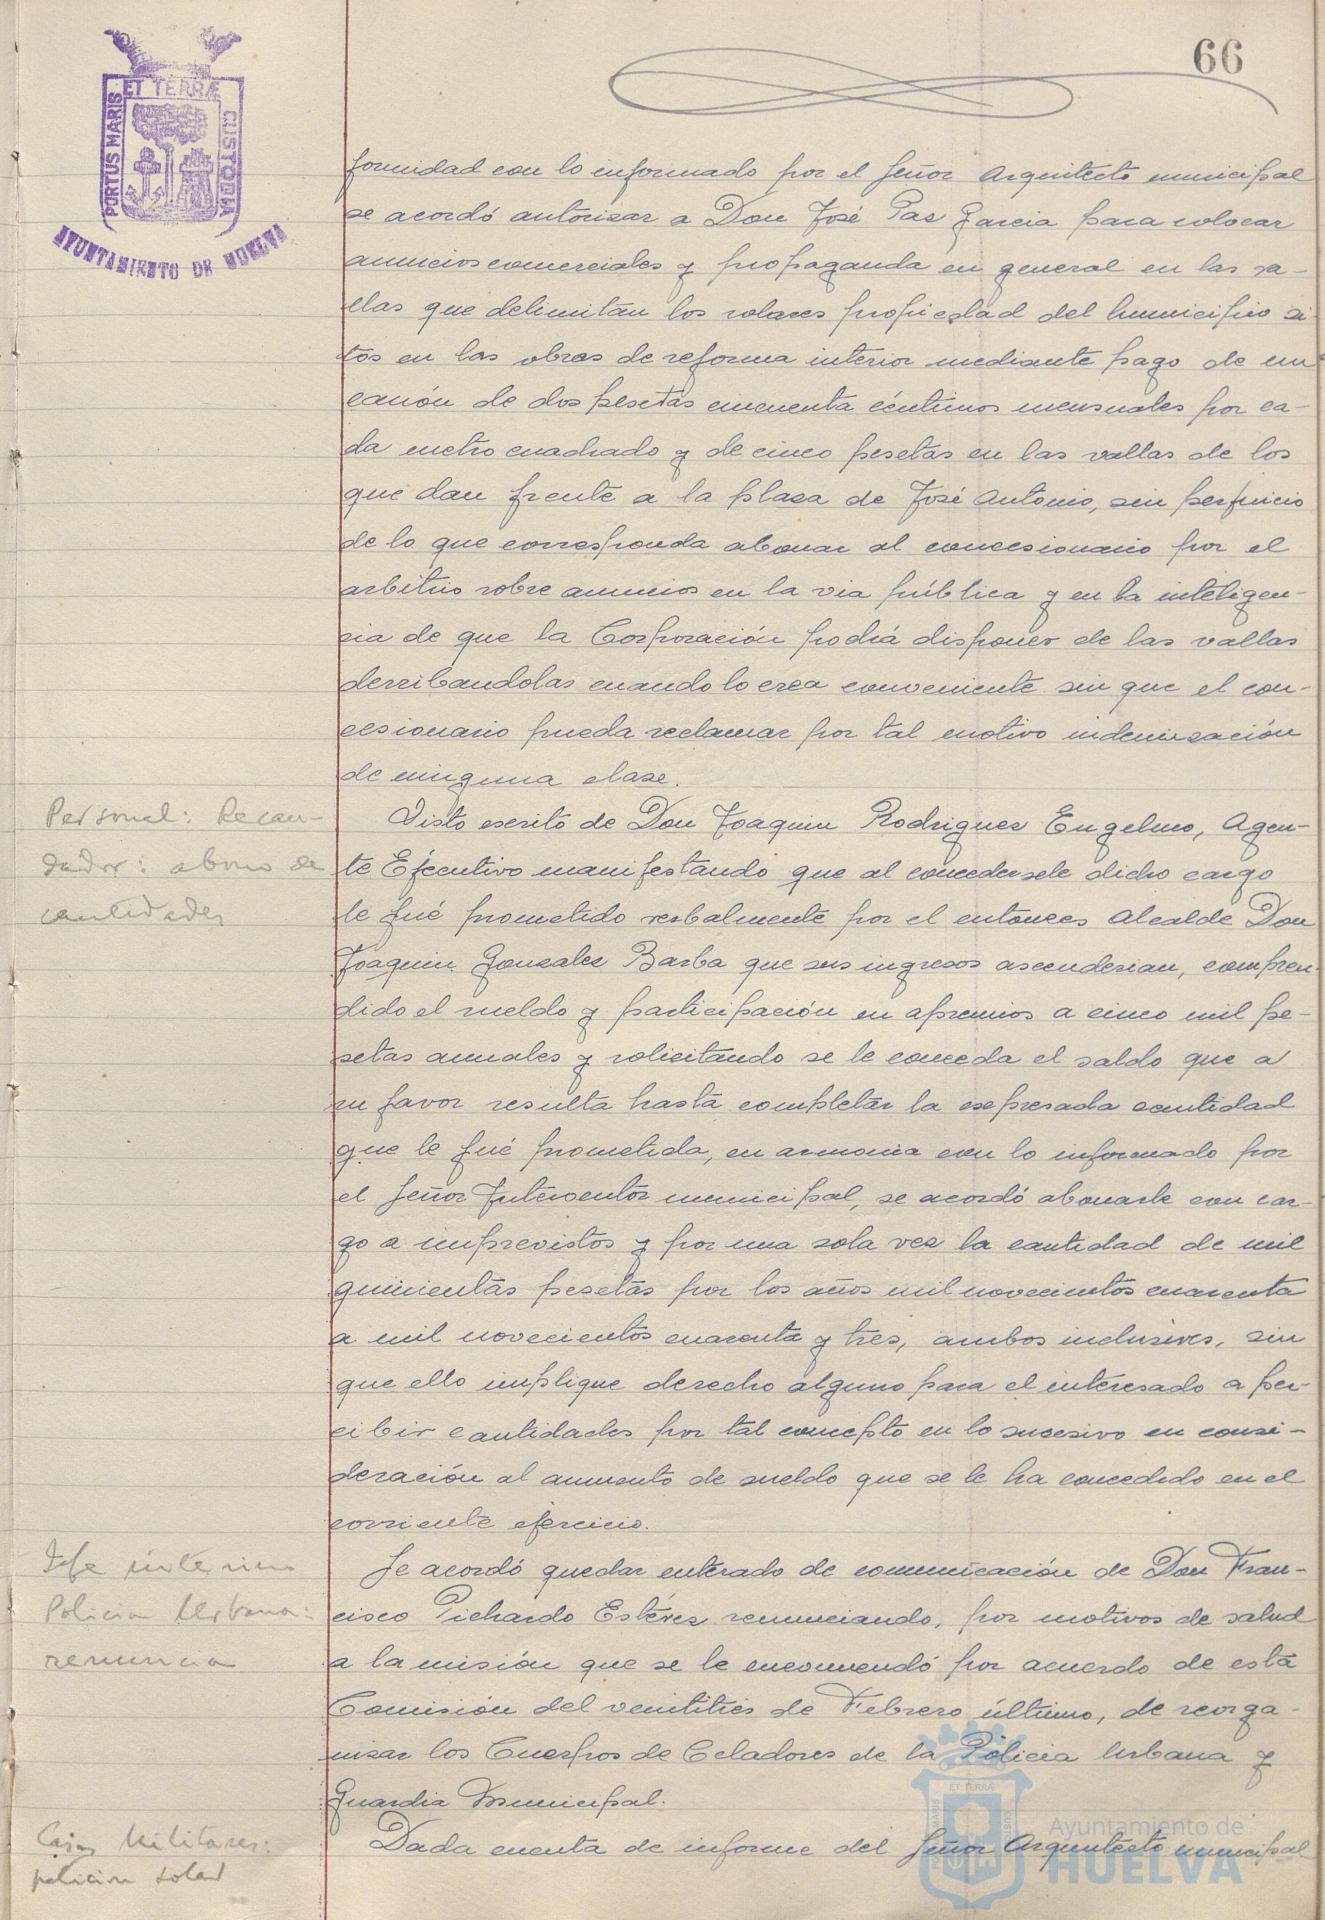 66
ET TERRÆ
PORTUS MARIS
CUSTODIA
AYUNTAMIENTO DE HUELVA
formidad con lo informado por el Señor Arquitecto municipal
se acordó autorizar a Don José Paz Garcia para colocar
anuncios comerciales y propaganda en general en las va-
llas que delimitan los solares propiedad del Municipio si-
tos en las obras de reforma interior mediante pago de un
canón de dos pesetas cincuenta céntimos mensuales por ca-
da metro cuadrado y de cinco pesetas en las vallas de los
que dan frente a la plaza de José Antonio, sin perjuicio
de lo que corresponda abonar al concesionario por el
arbitrio sobre anuncios en la via pública y en la inteligen-
cia de que la Corporación podrá disponer de las vallas
derribandolas cuando lo crea conveniente sin que el con-
cesionario pueda reclamar por tal motivo indemnización
de ninguna clase.
Personal: Recau-
dador: abono de
cantidades
Visto escrito de Don Joaquin Rodriguez Engelmo, Agen-
te Ejecutivo manifestando que al concedersele dicho cargo
le fué prometido verbalmente por el entonces Alcalde Don
Joaquin Gonzalez Barba que sus ingresos ascenderian, compren-
dido el sueldo y participación en apremios a cinco mil pe-
setas anuales y solicitando se le conceda el saldo que a
su favor resulta hasta completar la expresada cantidad
que le fué prometida, en armonia con lo informado por
el Señor Interventor municipal, se acordó abonarle con car-
go a imprevistos y por una sola vez la cantidad de mil
quinientas pesetas por los años mil novecientos cuarenta
a mil novecientos cuarenta y tres, ambos inclusives, sin
que ello implique derecho alguno para el interesado a per-
cibir cantidades por tal concepto en lo sucesivo en consi-
deración al aumento de sueldo que se le ha concedido en el
corriente ejercicio.
Jefe interino
Policia Urbana:
renuncia
Se acordó quedar enterado de comunicación de Don Fran-
cisco Pichardo Estévez renunciando, por motivos de salud
a la misión que se le encomendó por acuerdo de esta
Comisión del veintitrés de Febrero último, de reorga-
nizar los Cuerpos de Celadores de la Policia Urbana y
Guardia Municipal.
Casas Militares:
peticion solar
Dada cuenta de informe del Señor Arquitecto municipal
Ayuntamiento de
HUELVA